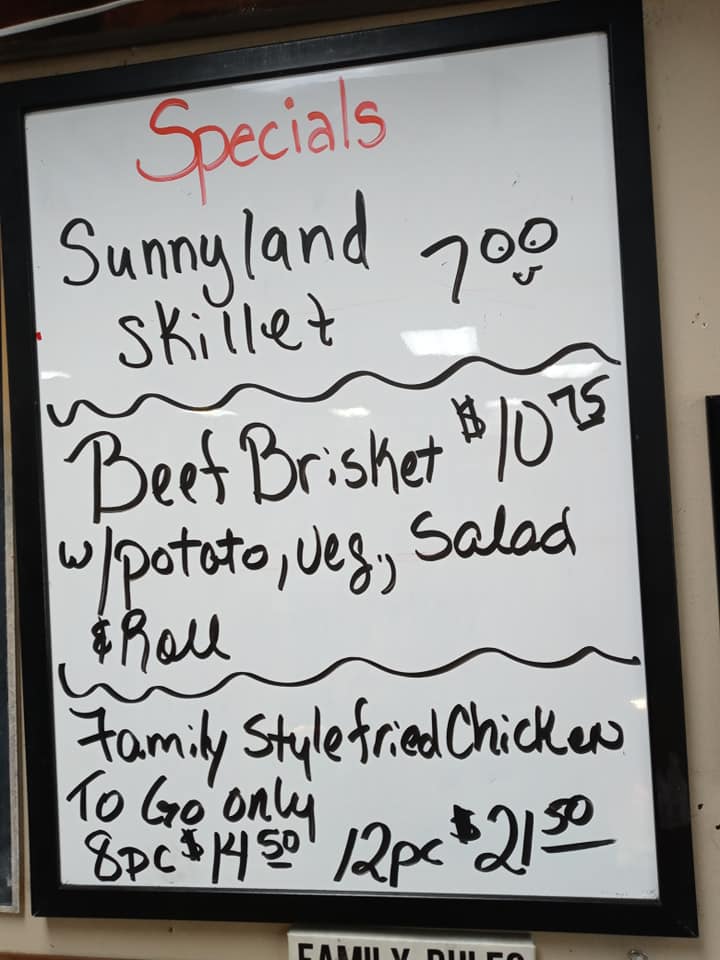 Specials
Sunnyland 7.00
Skillet
Beef Brisket $10.75
w/potato, Veg., Salad
& Roll
Family Style fried Chicken
To Go only
8pc $14.50 12pc $21.50
FAMILY RULES